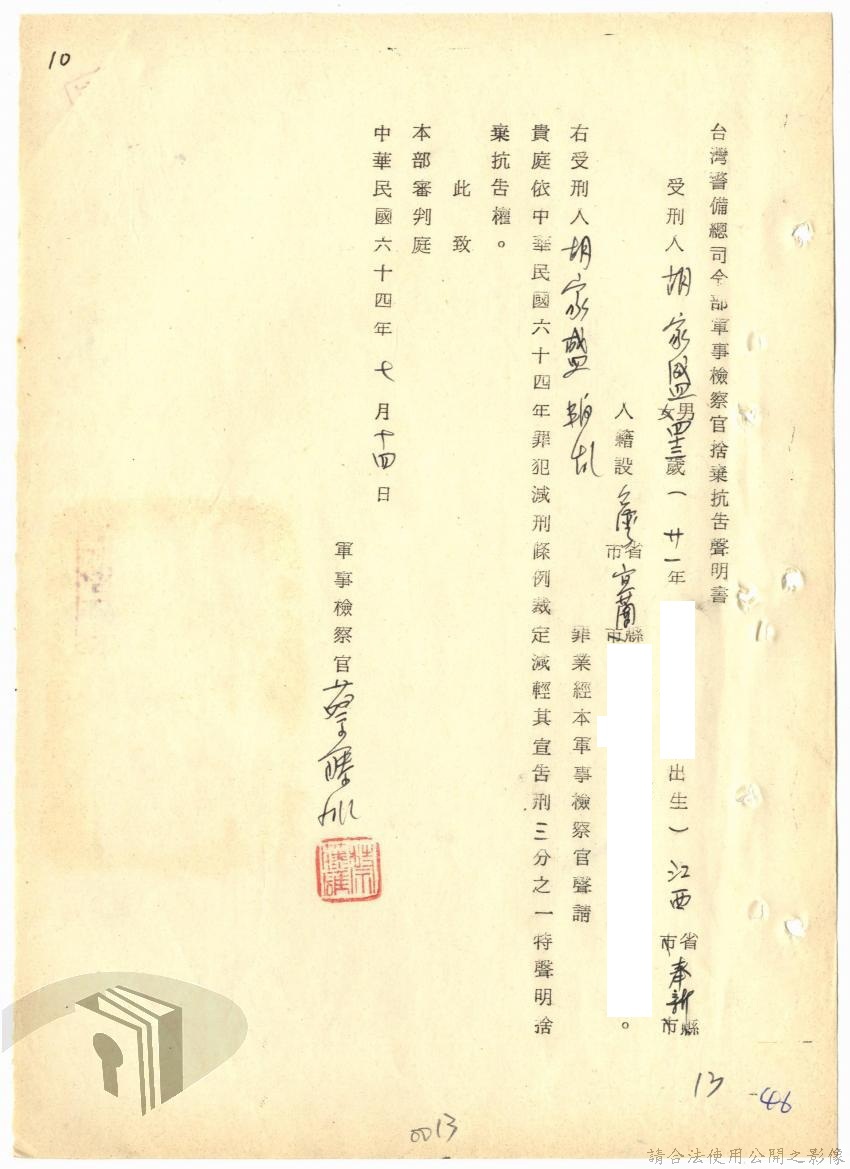 10
台灣警備總司令部軍事檢察官捨棄抗告聲明書
受刑人胡家盛 男女 四十三歲（廿一年 出生）江西省市奉新縣市
人籍設台灣省市宜蘭縣市 。
右受刑人胡家盛 叛亂 罪業經本軍事檢察官聲請
貴庭依中華民國六十四年罪犯減刑條例裁定減輕其宣告刑三分之一特聲明捨
棄抗告權。
此致
本部審判庭
中華民國六十四年七月十四日
軍事檢察官蔡藤雄
13
46
0013
請合法使用公開之影像